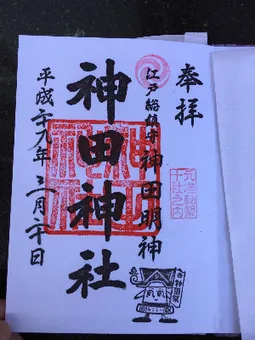 奉拝
江戸総鎮守 神田明神
神田神社
平成二十九年三月二十日
元准勅祭
十社之内